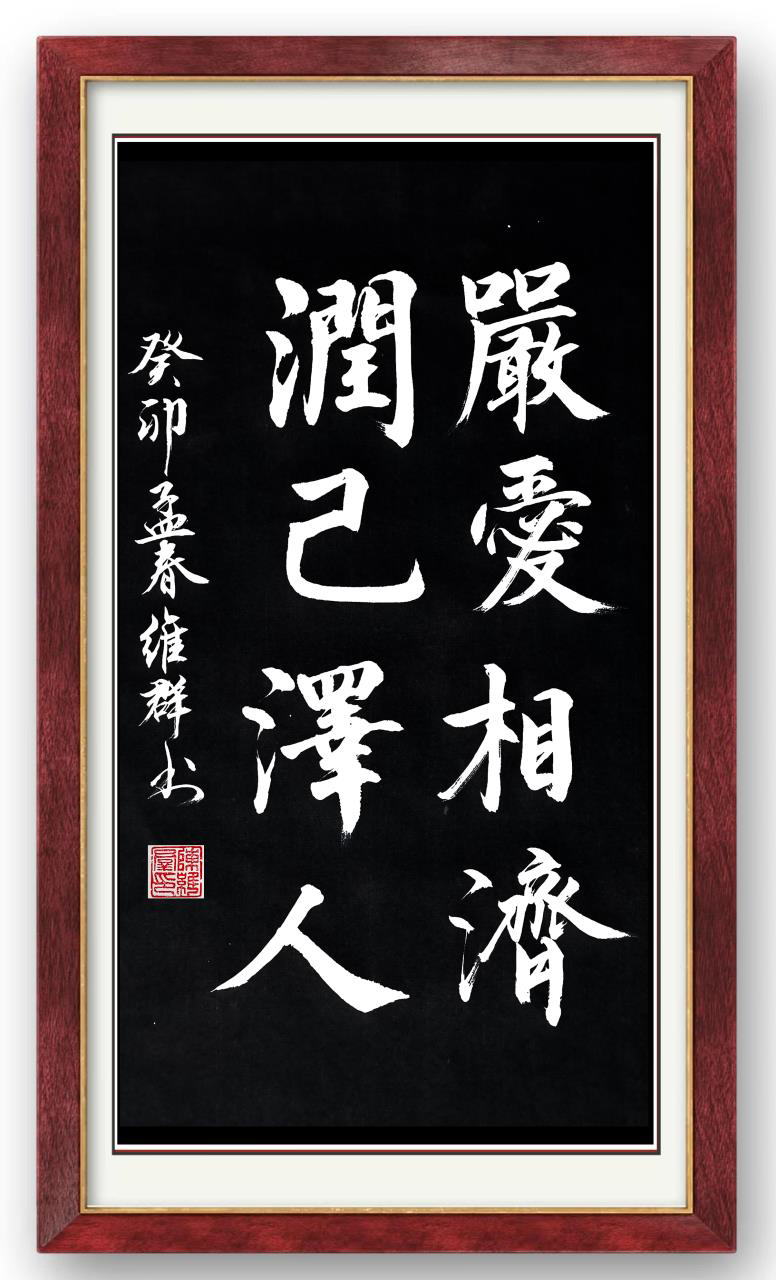 嚴愛相濟
潤己澤人
癸卯孟春維群书